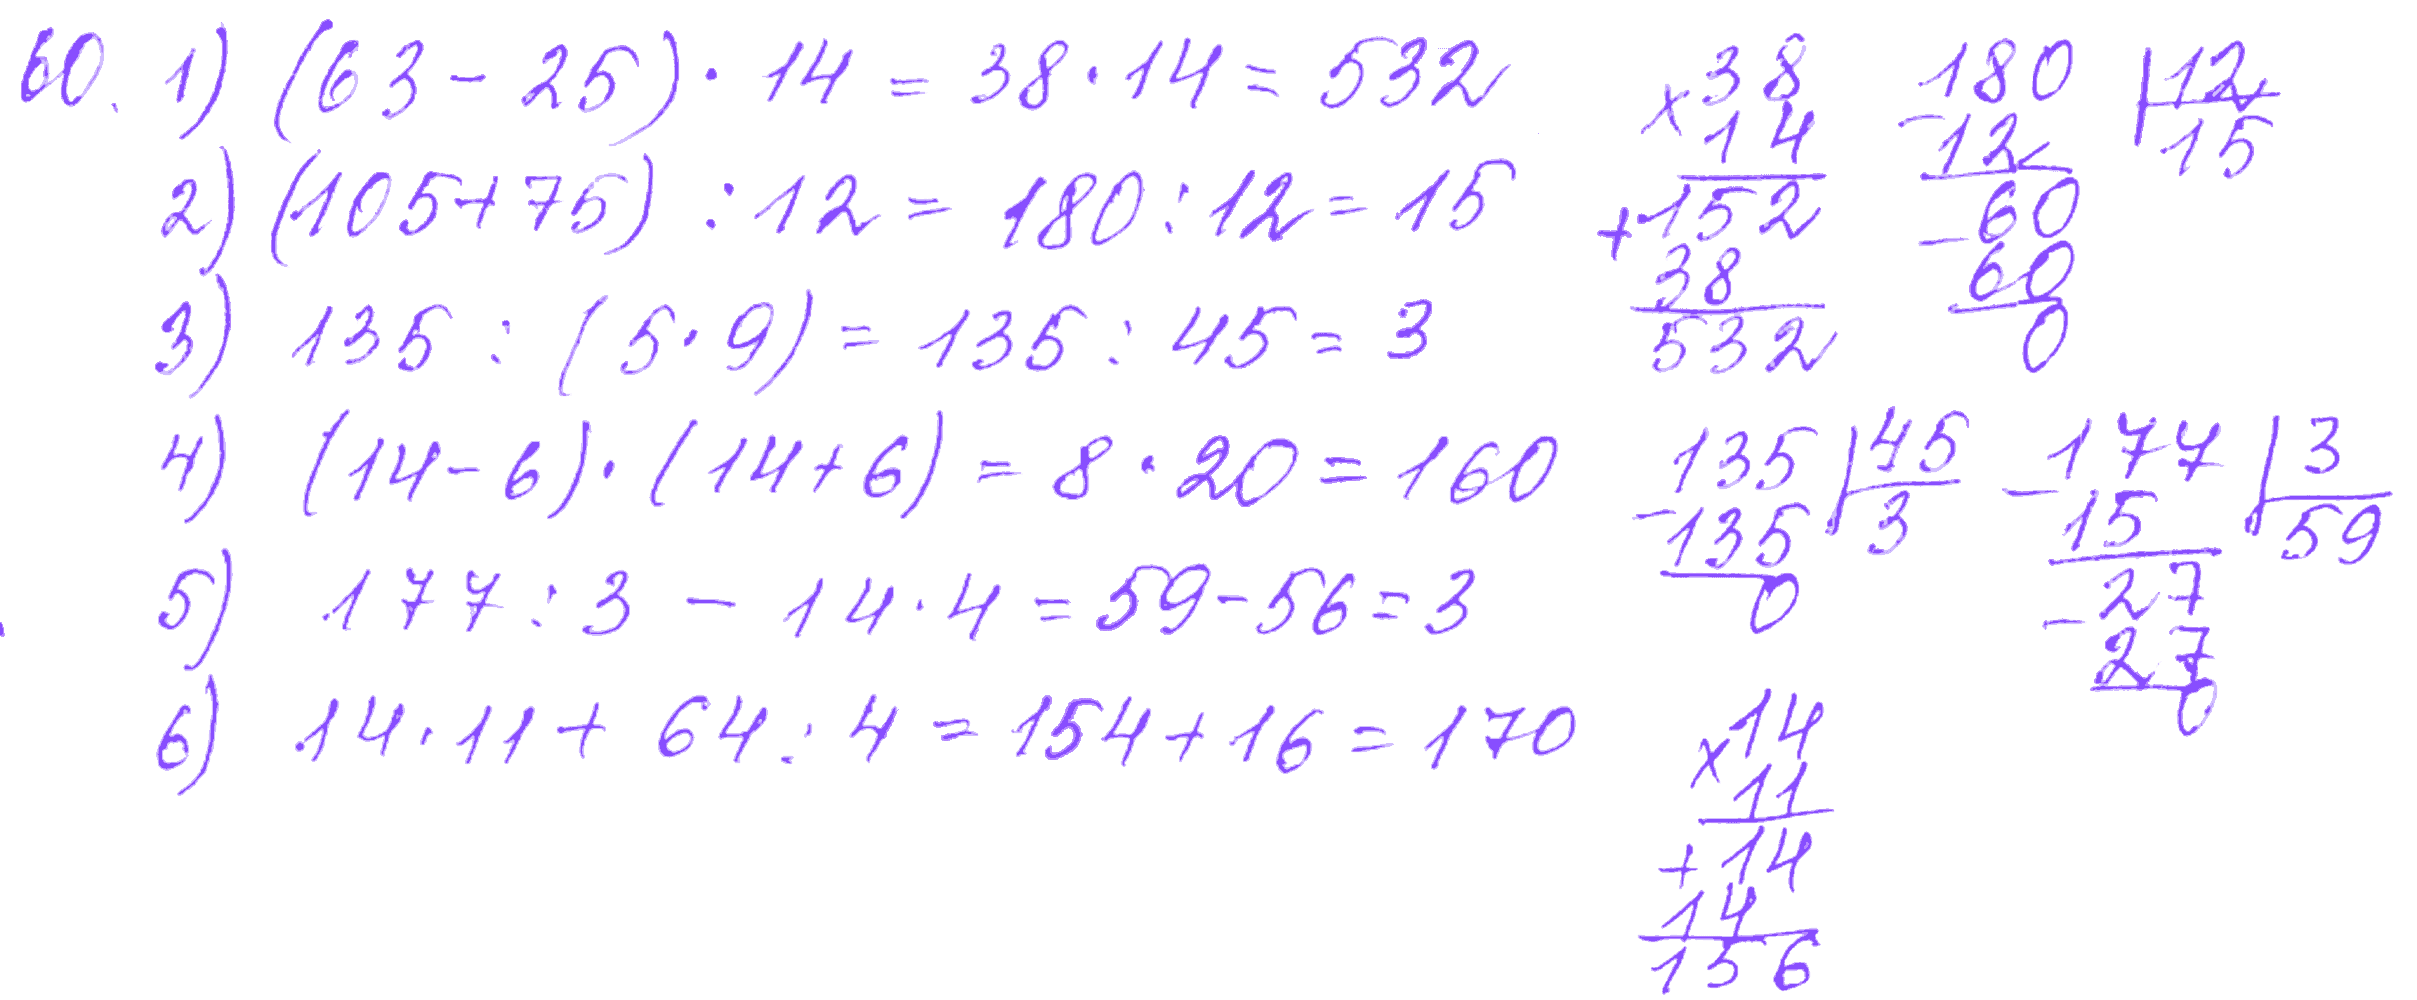 60. 1) (63 - 25) · 14 = 38 · 14 = 532
2) (105 + 75) : 12 = 180 : 12 = 15
3) 135 : (5 · 9) = 135 : 45 = 3
4) (14 - 6) · (14 + 6) = 8 · 20 = 160
5) 177 : 3 - 14 · 4 = 59 - 56 = 3
6) 14 · 11 + 64 : 4 = 154 + 16 = 170
x 38
14
+ 152
38
532
180 | 12
- 12 15
- 60
60
0
135 | 45
- 135 3
0
- 177 | 3
15 59
- 27
27
0
x 14
11
+ 14
14
156